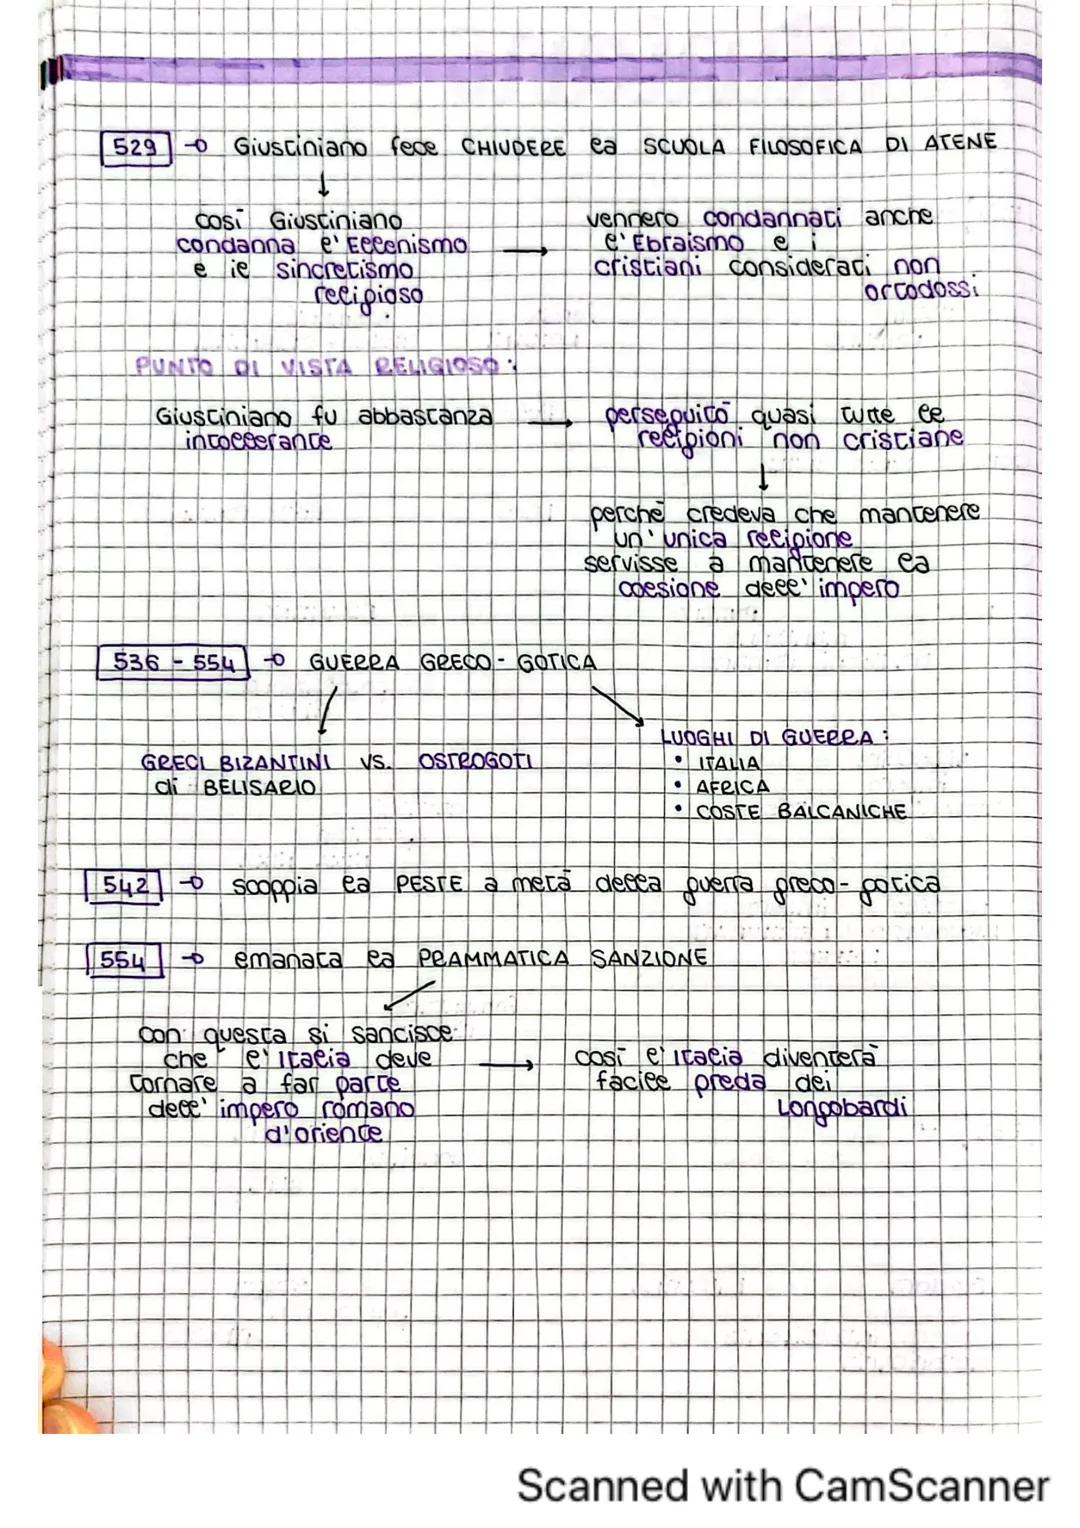 529 → Giustiniano fece CHIUDERE la SCUOLA FILOSOFICA DI ATENE
↓
così Giustiniano
condanna l'Ellenismo
e il sincretismo
religioso
→
vennero condannati anche
l'Ebraismo e i
cristiani considerati non
ortodossi
PUNTO DI VISTA RELIGIOSO:
Giustiniano fu abbastanza
intollerante
→
perseguitò quasi tutte le
religioni non cristiane
↓
perchè credeva che mantenere
un'unica religione
servisse a mantenere la
coesione dell'impero
536 - 554 → GUERRA GRECO - GOTICA
GRECI BIZANTINI VS. OSTROGOTI
di BELISARIO
LUOGHI DI GUERRA:
• ITALIA
• AFRICA
• COSTE BALCANICHE
542 → scoppia la PESTE a metà della guerra greco-gotica
554 → emanata la PRAMMATICA SANZIONE
con questa si sancisce
che l'Italia deve
tornare a far parte
dell'impero romano
d'oriente
→
così l'Italia diventerà
facile preda dei
Longobardi
Scanned with CamScanner